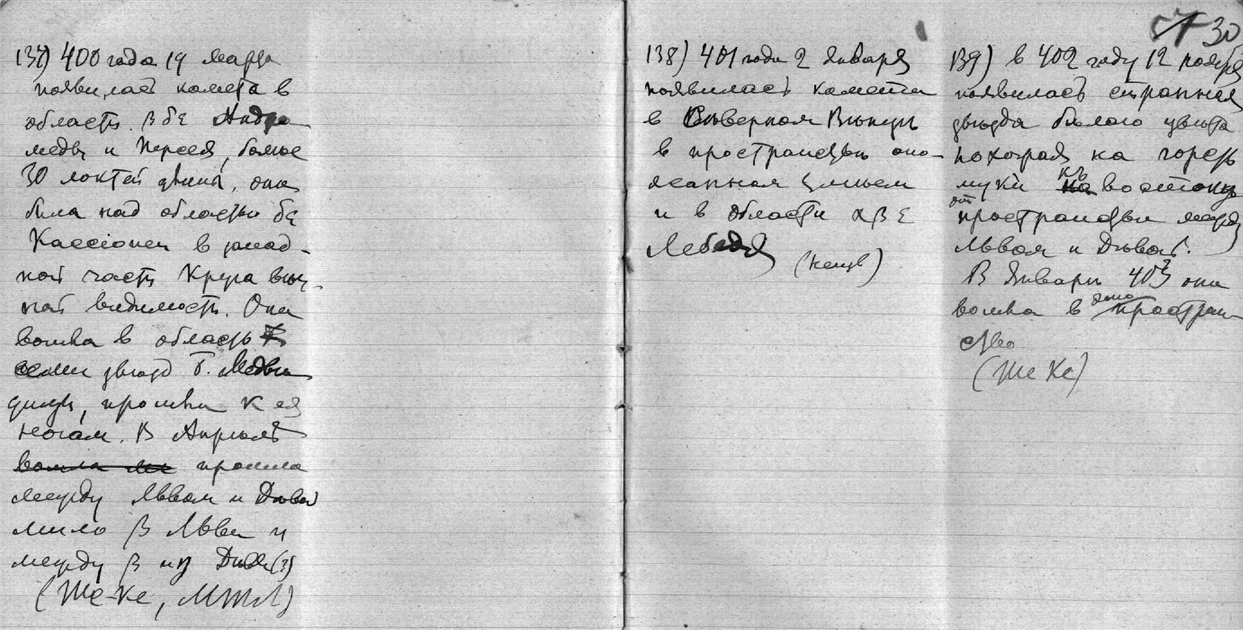 137) 400 года 19 марта
появилась комета в
область βδε Андро
меды и Персея, более
30 локтей длины, она
была над областью βε
Кассиопеи в запад-
ной части Круга веч-
ной видимости. Она
вошла в область
семи звезд Б. Медве
дицы, прошла к ея
ногам. В Апрѣлѣ
вошла прошла
между Львом и Дѣвой
мимо β Льва и
между β и η Дѣвы (?)
(Ше-Ке, МТЛ)
57 30
138) 401 года 2 Января
появилась комета
в Сѣверном Вѣнцѣ
в пространствѣ опо-
ясанном Змѣем
и в области αβε
Лебедя
139) в 402 году 12 ноября
появилась странная
звѣзда бѣлого цвѣта
похожая на горсть
муки на къ востоку
от
пространства между
Львом и Дѣвой.
В Январѣ 403 она
вошла в
пространство
ство
(Ше Ке)